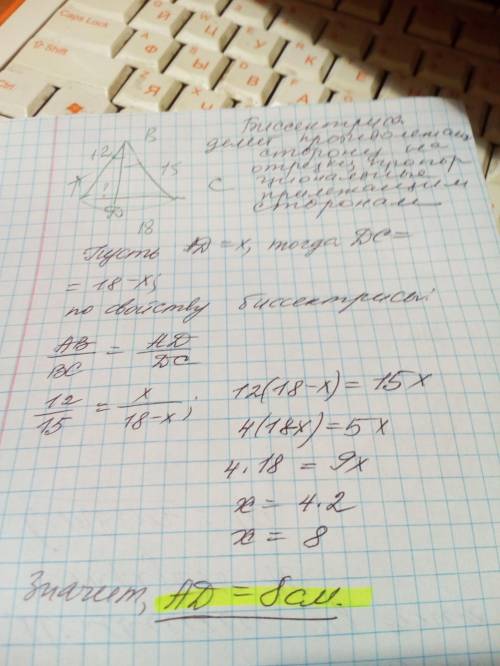 Caps Lock
Shift
Ctrl
Ф
Ы
В
А
Я
Ч
С
М
Й
Ц
У
К
Е
B
12
15
C
D
18
Биссектриса
делит противолежащ
сторону на
отрезки, пропор
циональные
прилежащим
сторонам
Пусть AD = x, тогда DC =
= 18 - x;
по свойству биссектрисы:
AB/BC = AD/DC
12/15 = x/18-x;
12(18-x) = 15x
4(18x) = 5x
4·18 = 9x
x = 4·2
x = 8
Значит, AD = 8 см.